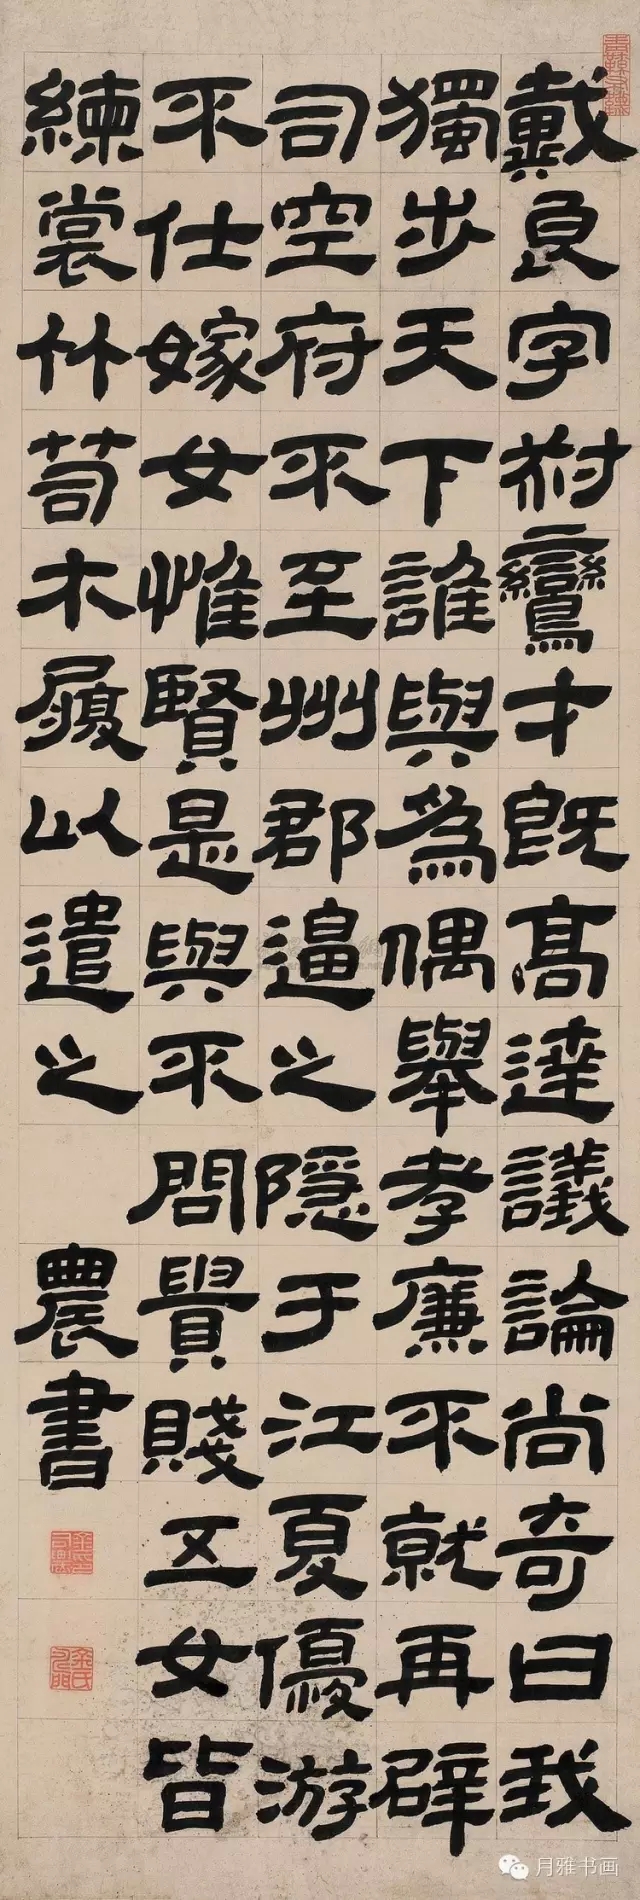 戴良字叔鸞才既高達議論尚奇曰我
獨步天下誰與為偶舉孝廉不就再辟
司空府不至州郡逼之隱于江夏優游
不仕嫁女惟賢是與不問貴賤五女皆
練裳竹笥木屐以遣之
農書
月雅书画